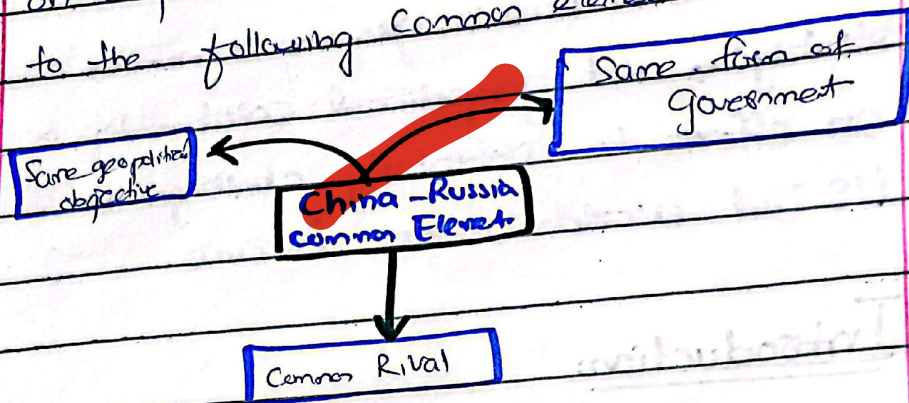 to the following Common
Same form of
government
Same geopolitical
objective
China - Russia
common Element
Common Rival
Introduction: